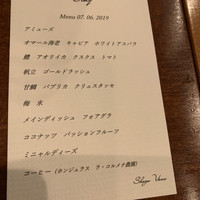 Menu 07. 06. 2019
アミューズ
オマール海老 キャビア ホワイトアスパラ
鰹 アオリイカ クスクス トマト
帆立 ゴールドラッシュ
甘鯛 パプリカ クリュスタッセ
梅 水
メインディッシュ フォアグラ
ココナッツ パッションフルーツ
ミニャルディーズ
コーヒー (ホンジュラス ラ・コルメナ農園)